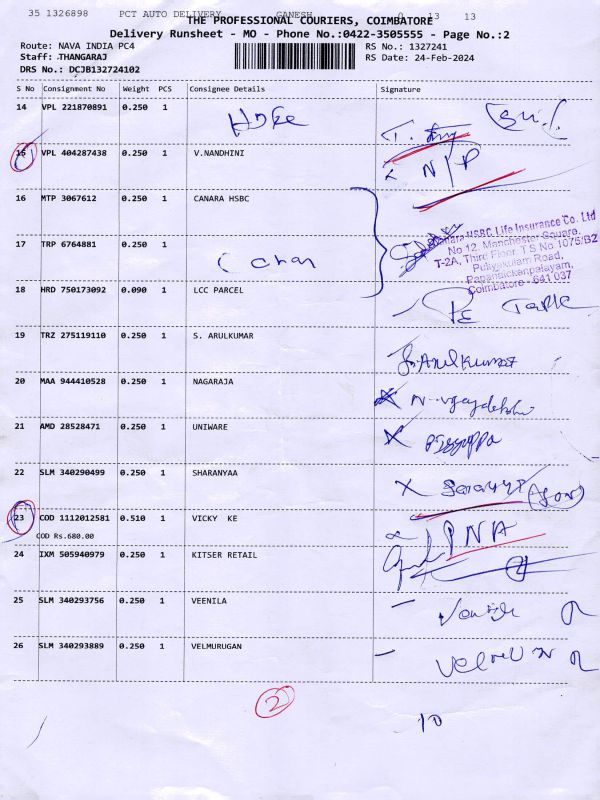 35 1326898 PCT AUTO DELIVERY GANESH 0 13 13
THE PROFESSIONAL COURIERS, COIMBATORE
Delivery Runsheet - MO - Phone No.:0422-3505555 - Page No.:2
Route: NAVA INDIA PC4 RS No.: 1327241
Staff: THANGARAJ RS Date: 24-Feb-2024
DRS No.: DCJB132724102
S No Consignment No Weight PCS Consignee Details Signature
14 VPL 221870891 0.250 1
15 VPL 404287438 0.250 1 V.NANDHINI N/P
16 MTP 3067612 0.250 1 CANARA HSBC
HSBC Life Insurance Co. Ltd
No 12, Manchester Square,
17 TRP 6764881 0.250 1
T-2A, Third Floor, T.S No 1075/B2
Puliyakulam Road,
Papanaickenpalayam,
Coimbatore - 641 037
18 HRD 750173092 0.090 1 LCC PARCEL
19 TRZ 275119110 0.250 1 S. ARULKUMAR
S. Arulkumar
20 MAA 944410528 0.250 1 NAGARAJA
21 AMD 28528471 0.250 1 UNIWARE
22 SLM 340290499 0.250 1 SHARANYAA
23 COD 1112012581 0.510 1 VICKY KE PNA
COD Rs.680.00
24 IXM 505940979 0.250 1 KITSER RETAIL
25 SLM 340293756 0.250 1 VEENILA
26 SLM 340293889 0.250 1 VELMURUGAN
2
10